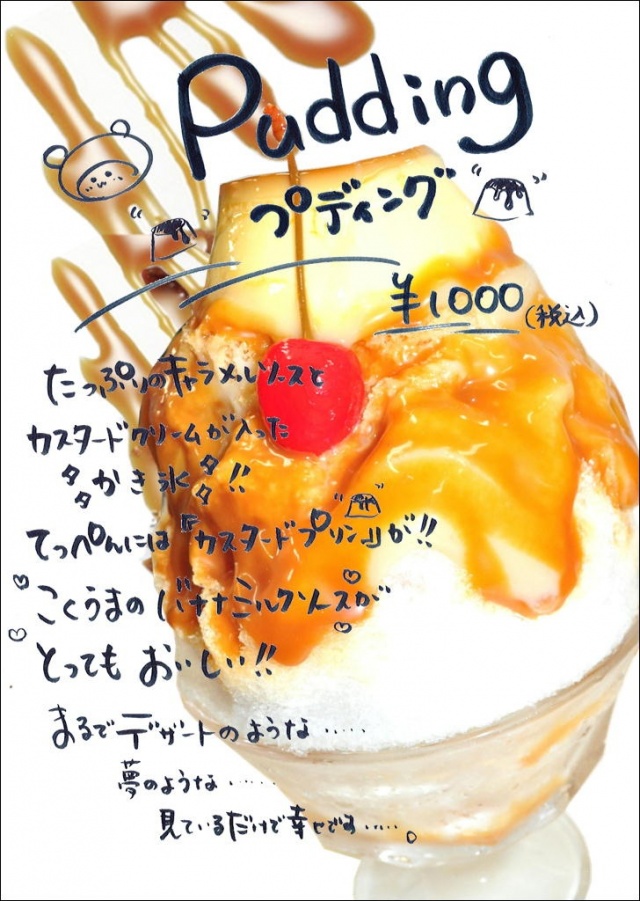 Pudding
プディング
¥1000(税込)
たっぷりのキャラメルソースと
カスタードクリームが入った
かき氷!!
てっぺんには『カスタードプリン』が!!
こくうまのバナナミルクソースが
とってもおいしい!!
まるでデザートのような……
夢のような……
見ているだけで幸せです……。